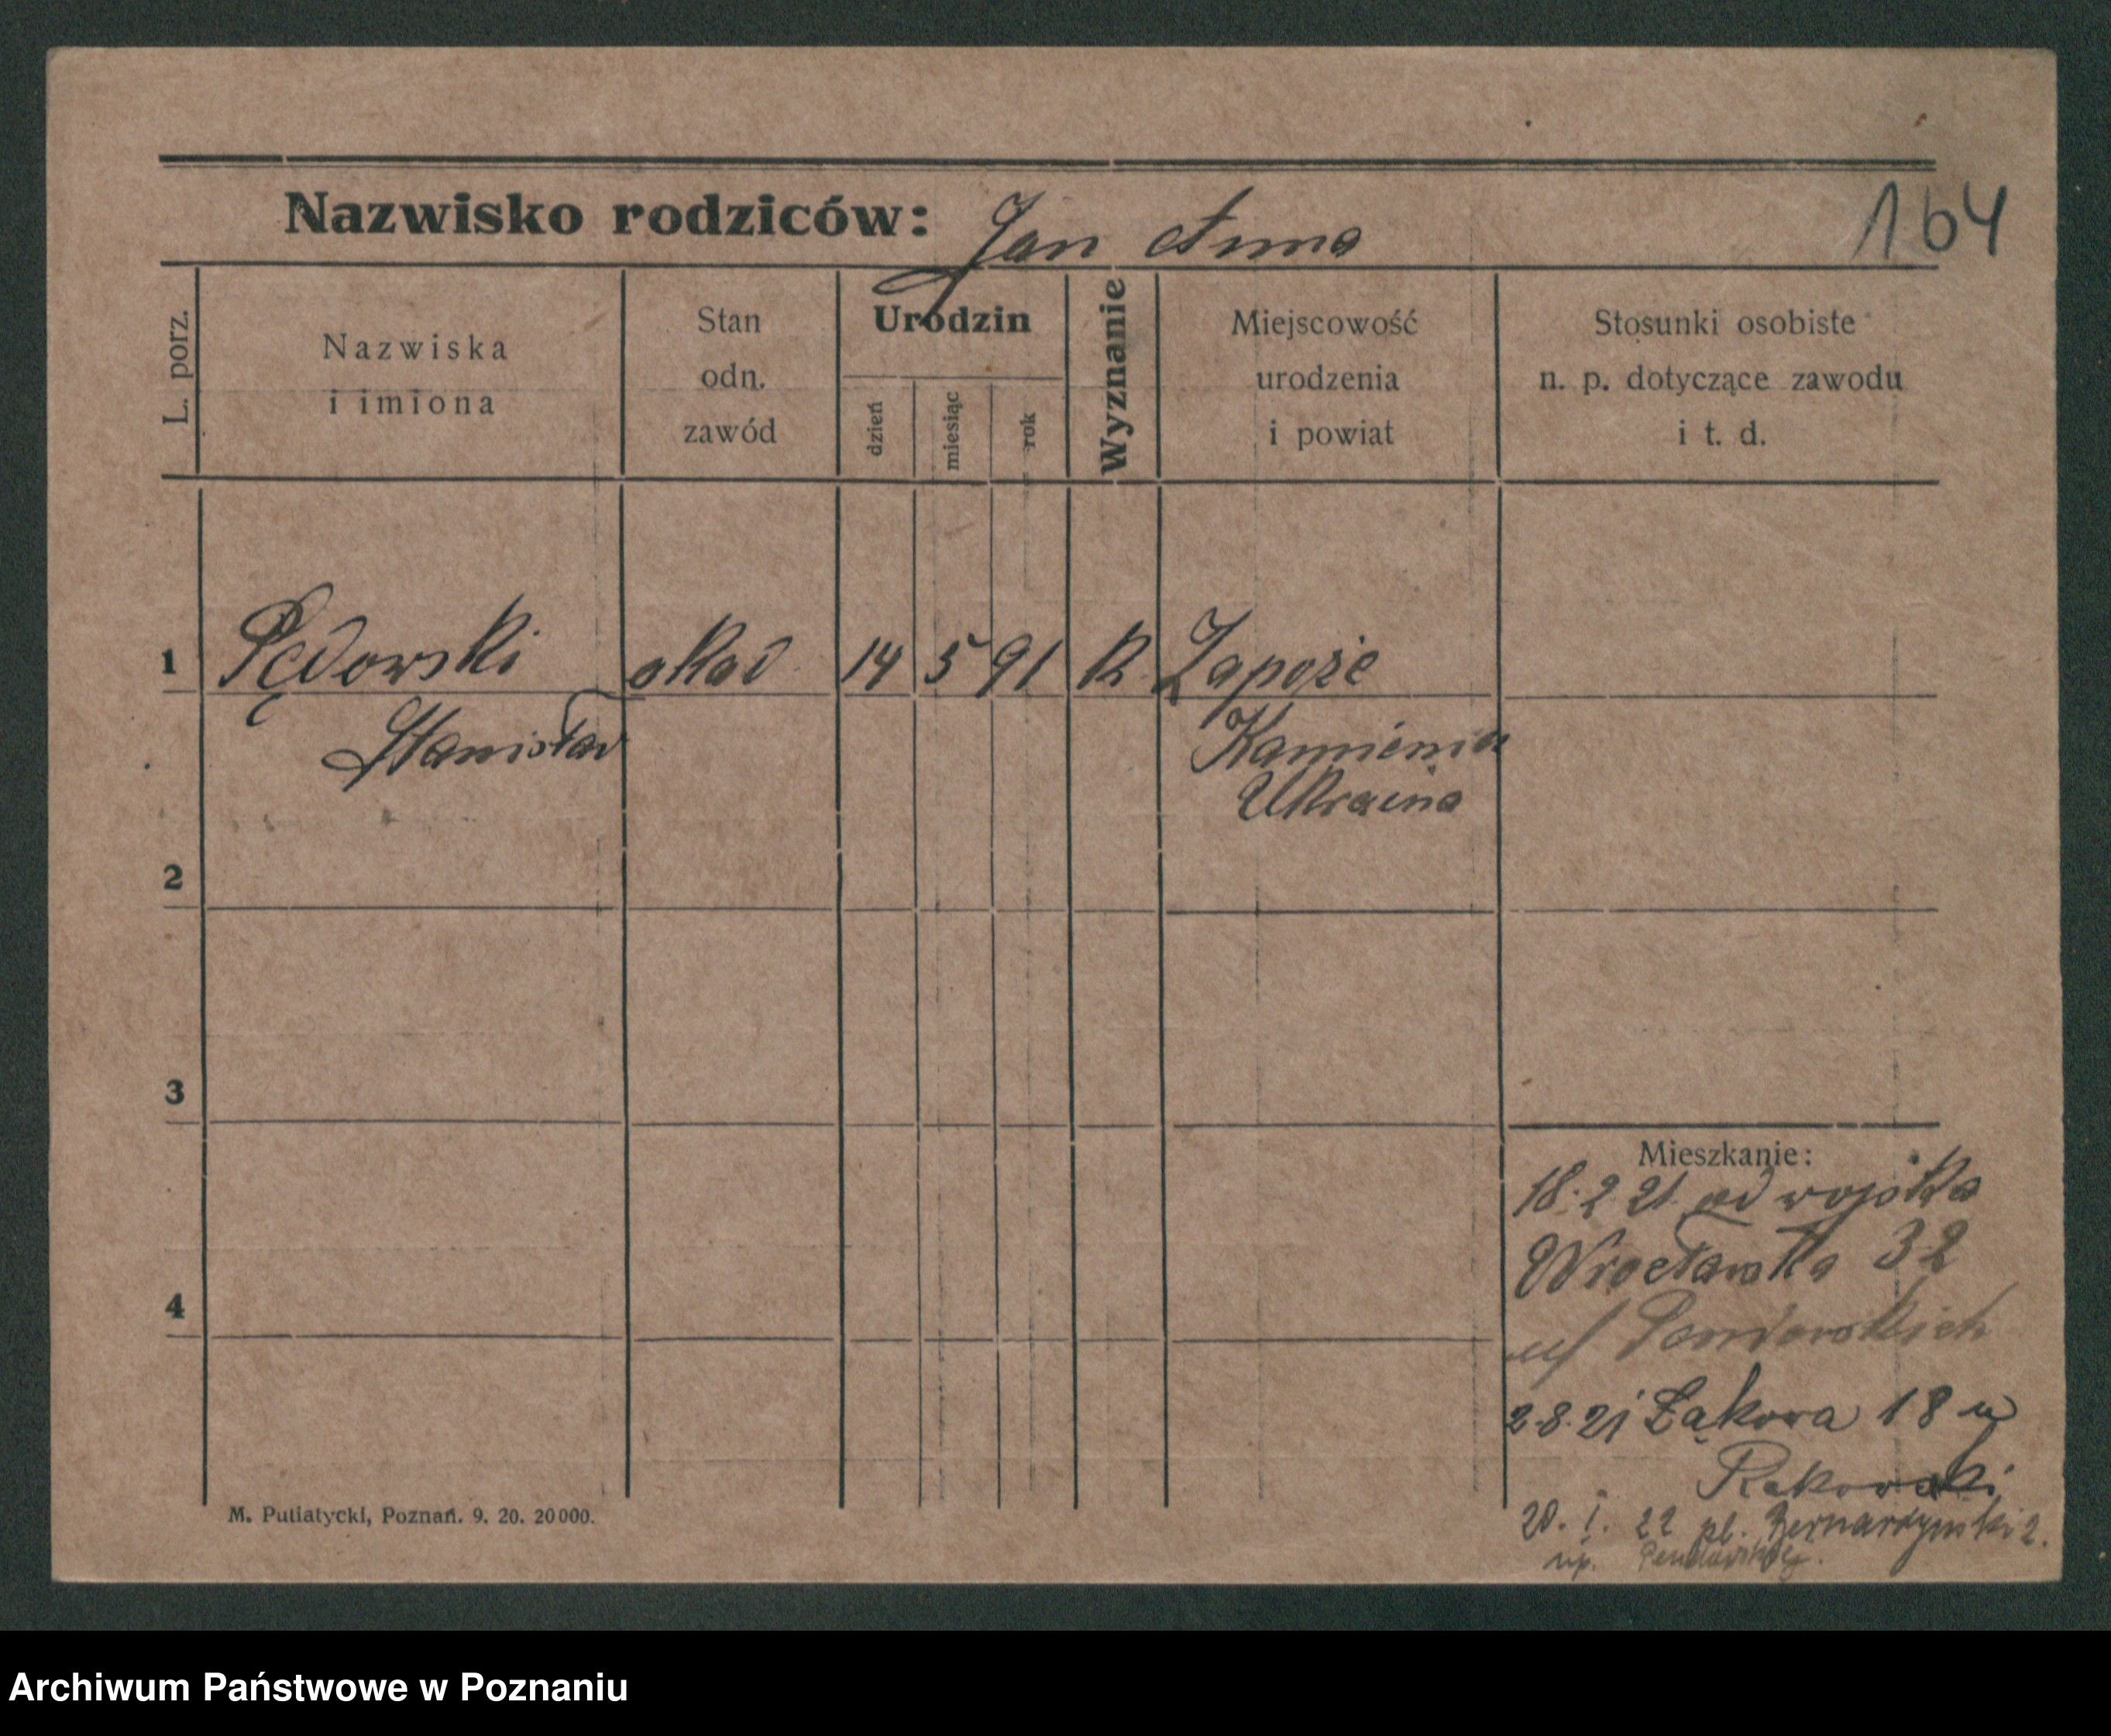 164
Nazwisko rodziców: Jan Anna
L. porz.
Nazwiska
i imiona
Stan
odn.
zawód
Urodzin
dzień
miesiąc
rok
Wyznanie
Miejscowość
urodzenia
i powiat
Stosunki osobiste
n. p. dotyczące zawodu
i t. d.
1 Pędowski akad 14 5 91 R Zapoże
Stanisław Kamienia
Ukraina
2
3
4
Mieszkanie:
18. 2 21 od wojska
Wrocławska 32
Pendowskich
2.8.21 Łąkowa 18 u
Rakowski
20. I. 22 pl. Bernardyński 2.
Pendowskiej.
M. Putiatycki, Poznań. 9. 20. 20000.
Archiwum Państwowe w Poznaniu